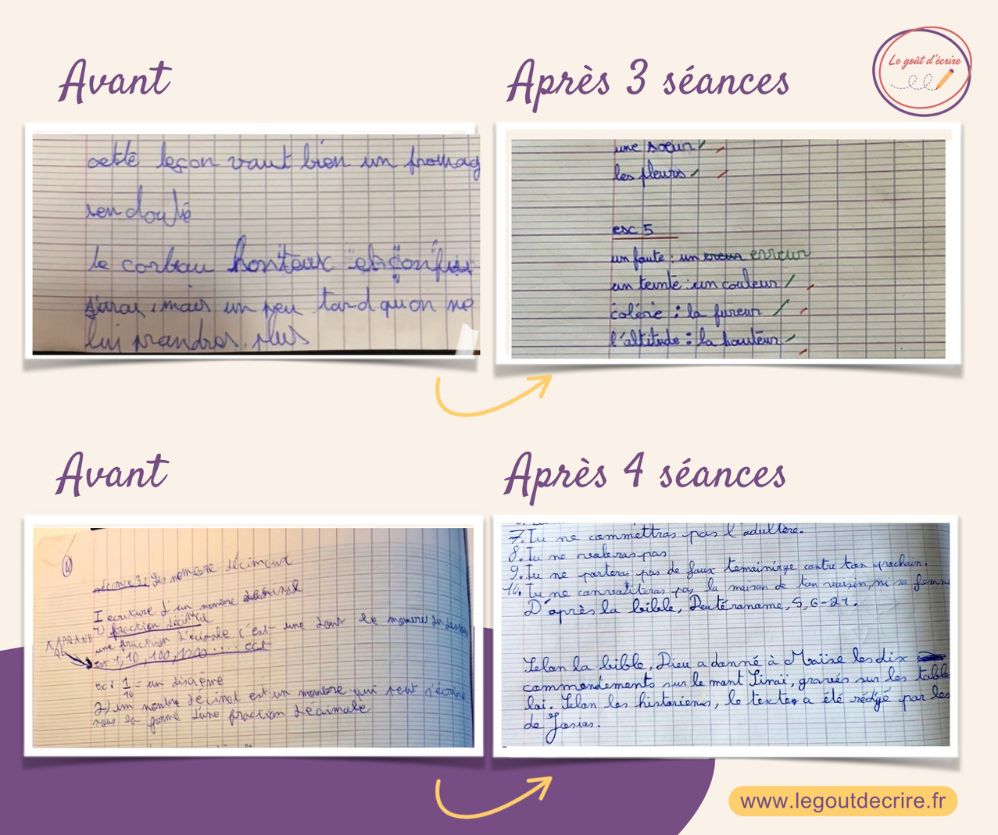 Avant
Après 3 séances
Le goût d'écrire
cette leçon vaut bien un fromag
sen doute
le corbau honteux et confus
jura, mais un peu tard qu on ne
lui prandras plus
une sœur
les fleurs
exc 5
un faute : un erreur
un teinte : un couleur
coléré : la fureur
l'altitude : la hauteur
Avant
Après 4 séances
décimaux
I ecriture d'un nombre décimal
1) fraction décimal
une fraction décimale c'est une dont le
est 1, 10, 100, 1000 .... ect
ex : 1/10 = un dixième
2) un nombre decimal est un nombre qui peut s'écrire
sous la forme d'une fraction decimale
7. Tu ne commettras pas l'adultère.
8. Tu ne voleras pas
9. Tu ne porteras pas de faux temainiage contre ton prochain.
10. Tu ne convoititeras pas la maison de ton voisin, ni sa femme
D'après la bible, Deutéronome, 5, 6-21.
Selon la bible, Dieu a donné à Moïse les dix
commendements sur le mont Sinaï, gravés sur les table
loi. Selon les historiens, le textes a été rédigé par les
de Josias.
www.legoutdecrire.fr